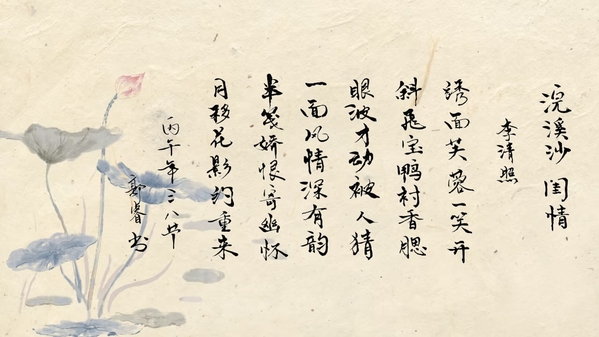 浣溪沙 闺情
李清照
绣面芙蓉一笑开
斜飞宝鸭衬香腮
眼波才动被人猜
一面风情深有韵
半笺娇恨寄幽怀
月移花影约重来
丙午年三八节
睿书